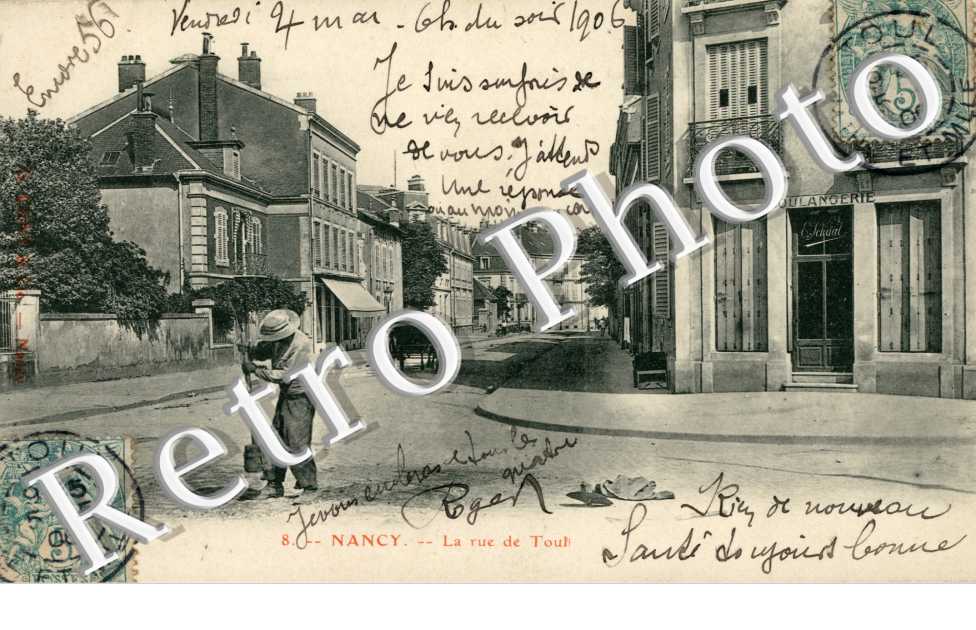 Vendredi 4 mai - 6h du soir 1906
Encore 56
Je suis surpris de
ne rien recevoir
de vous. J'attends
Une réponse
TOUL
5
BOULANGERIE
RetroPhotoPro
Je vous embrasse tous les
quatre
Roger
Rien de nouveau
Santé toujours bonne
8. -- NANCY. -- La rue de Toul
TOUL
5